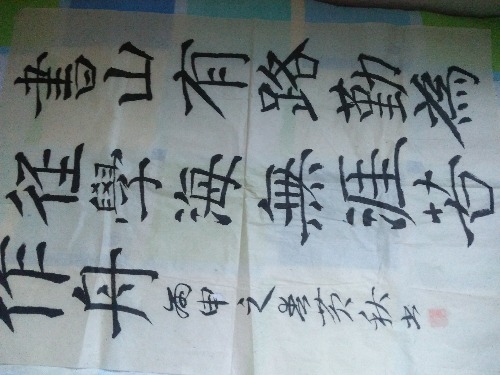 書山有路勤為
径學海無涯苦
作舟
丙申之 秋书